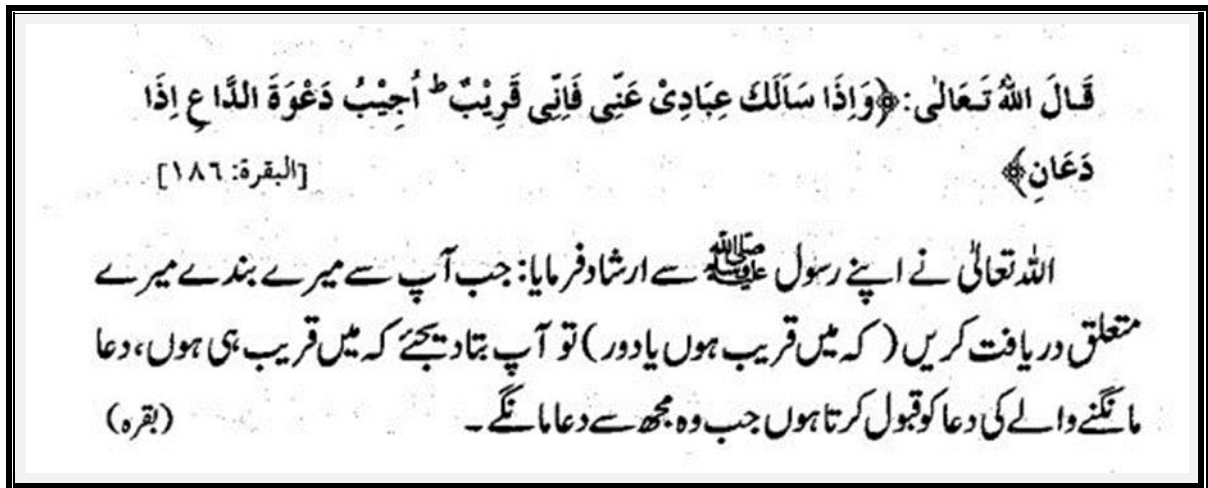 قَالَ اللهُ تَعَالٰى: ﴿وَاِذَا سَاَلَكَ عِبَادِىْ عَنِّى فَاِنِّى قَرِيْبٌ ط اُجِيْبُ دَعْوَةَ الدَّاعِ اِذَا
دَعَانِ﴾ [البقرة: ١٨٦]
اللہ تعالیٰ نے اپنے رسول ﷺ سے ارشاد فرمایا: جب آپ سے میرے بندے میرے
متعلق دریافت کریں (کہ میں قریب ہوں یا دور) تو آپ بتا دیجئے کہ میں قریب ہی ہوں، دعا
مانگنے والے کی دعا کو قبول کرتا ہوں جب وہ مجھ سے دعا مانگے۔ (بقرہ)